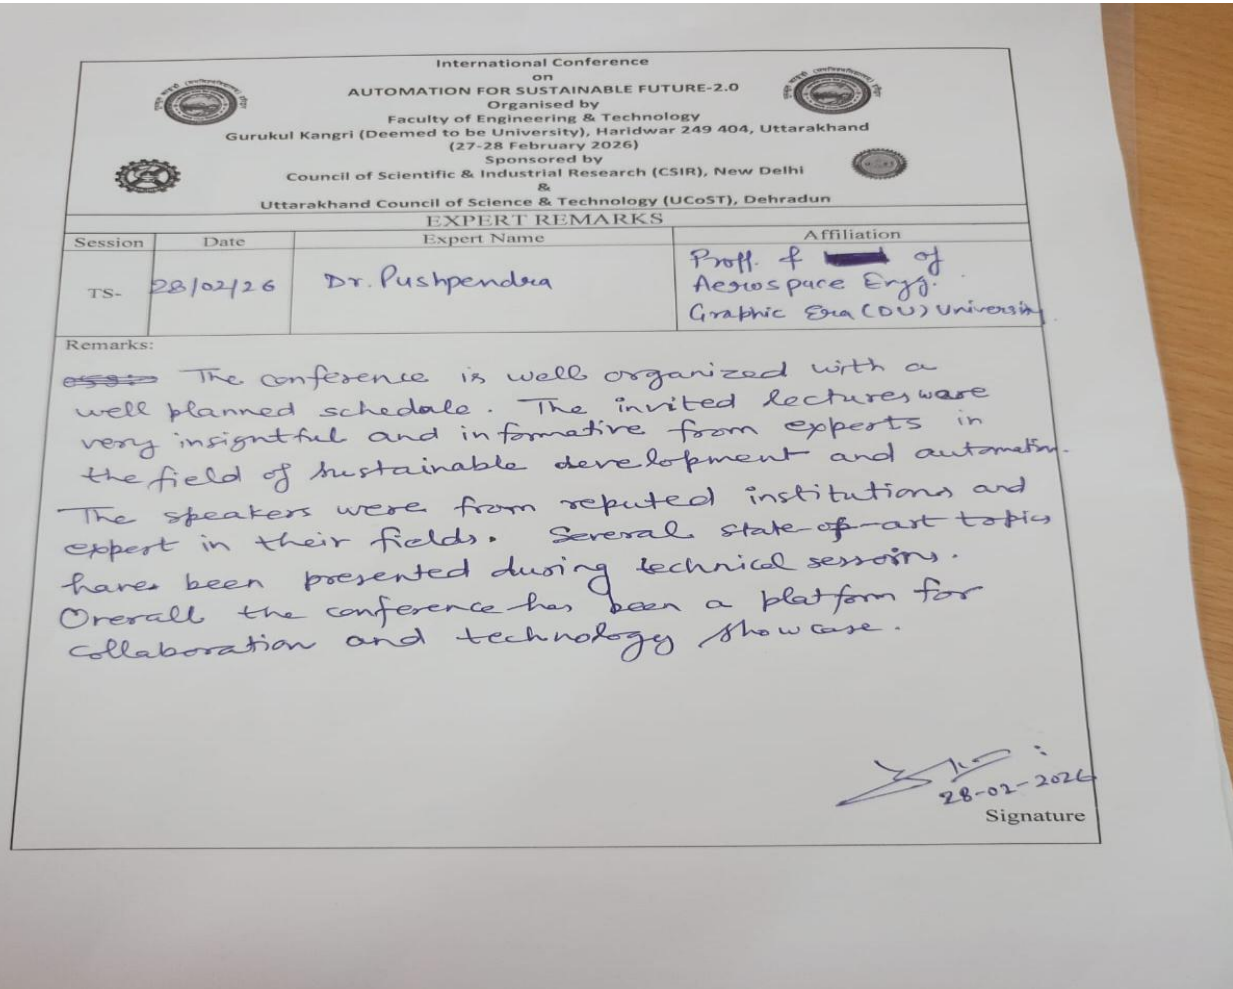 International Conference
on
AUTOMATION FOR SUSTAINABLE FUTURE-2.0
Organised by
Faculty of Engineering & Technology
Gurukul Kangri (Deemed to be University), Haridwar 249 404, Uttarakhand
(27-28 February 2026)
Sponsored by
Council of Scientific & Industrial Research (CSIR), New Delhi
&
Uttarakhand Council of Science & Technology (UCoST), Dehradun
EXPERT REMARKS
Session Date Expert Name Affiliation
TS- 28/02/26 Dr. Pushpendra Proff. & of
Aerospace Engg.
Graphic Era (DU) University
Remarks:
The conference is well organized with a
well planned schedule. The invited lectures were
very insightful and informative from experts in
the field of sustainable development and automation.
The speakers were from reputed institutions and
expert in their fields. Several state-of-art topics
have been presented during technical sessoins.
Overall the conference has been a platform for
collaboration and technology showcase.
28-02-2026
Signature